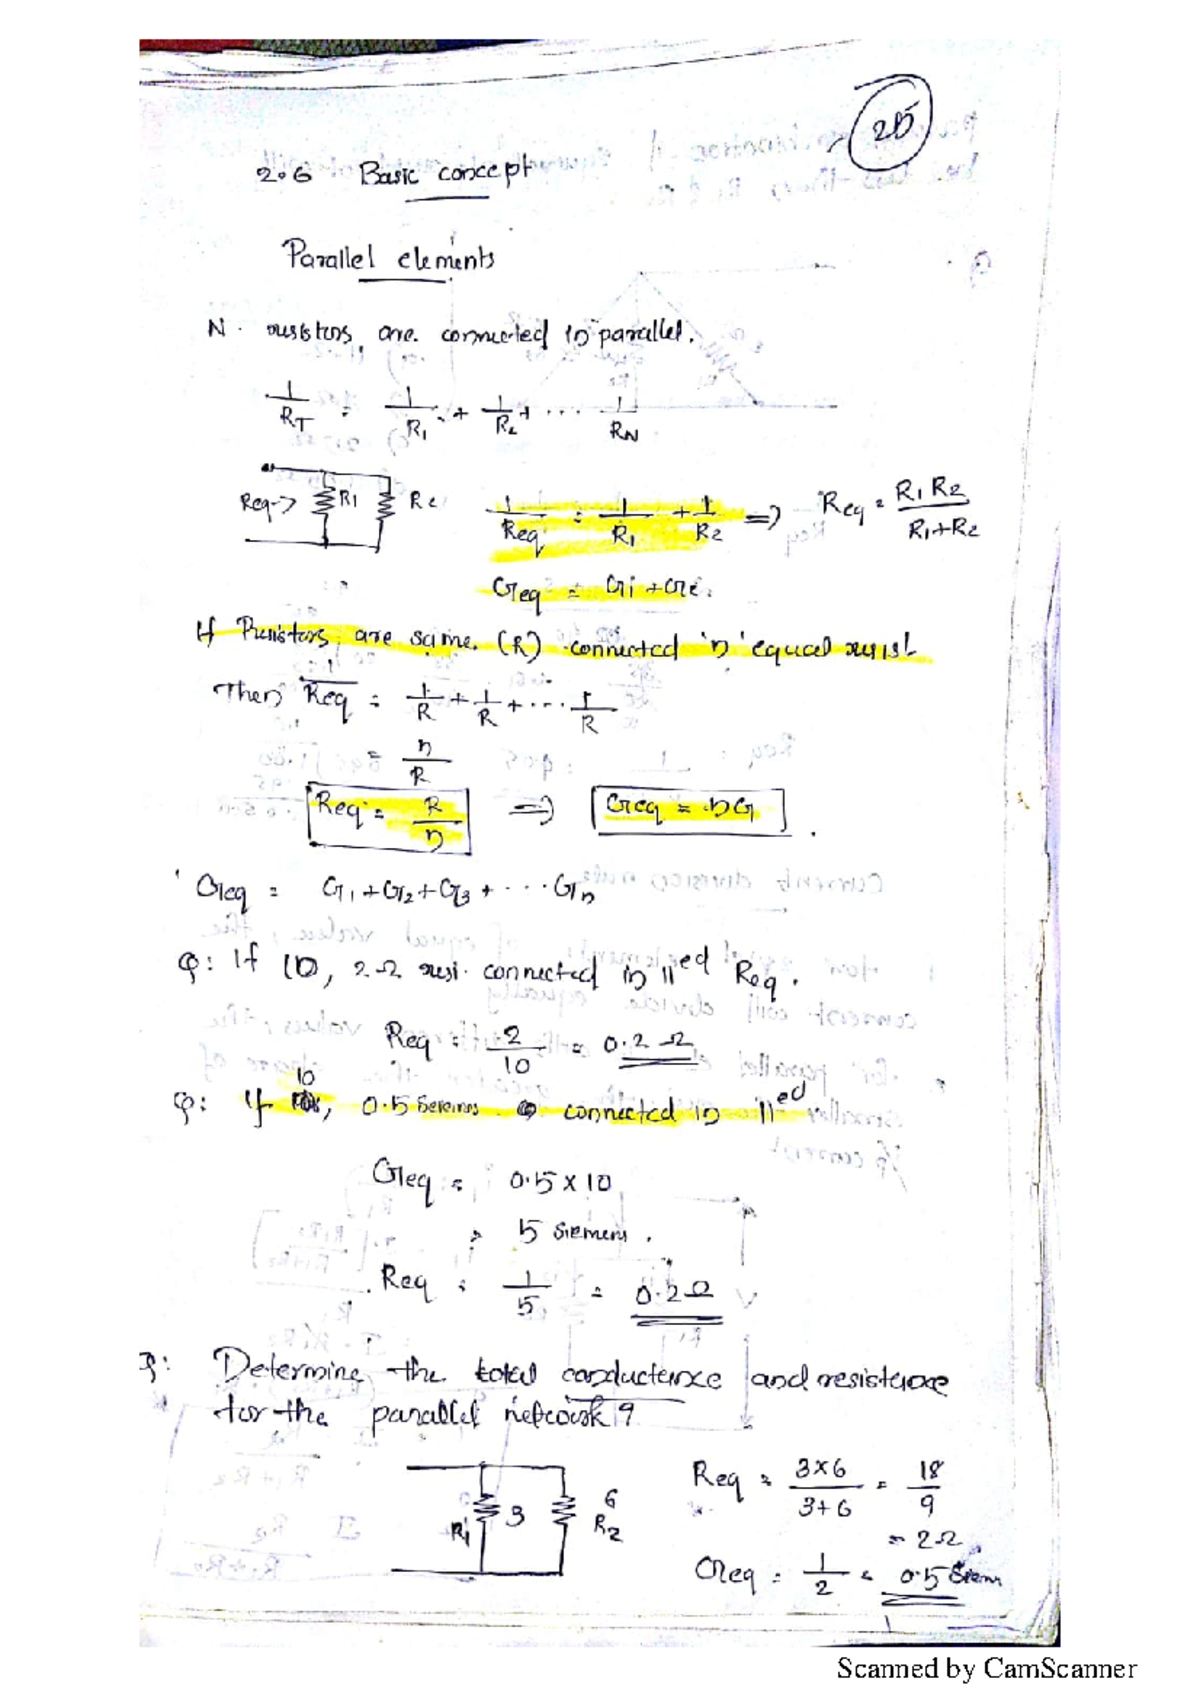 25
2.6 Basic concept
Parallel elements
N resistors are connected in parallel.
1/RT = 1/R1 + 1/R2 + ... 1/RN
Req-> R1 R2 1/Req = 1/R1 + 1/R2 => Req = R1 R2/R1+R2
Geq = G1+G2.
If Resistors are same (R) connected 'n' equal resist
Then 1/Req = 1/R + 1/R + ... 1/R
= n/R
Req = R/n => Geq = nG
Geq = G1+G2+G3 + ... Gn
Q: If 10, 2Ω resi. connected in ||ed Req.
Req = 2/10 = 0.2 Ω
10
Q: If 0.5 Seiemns connected in ||ed
Geq = 0.5 x 10
= 5 Siemens.
Req = 1/5 = 0.2Ω
Q: Determine the total conductance and resistance
for the parallel network?
R1 3 6 R2 Req = 3x6/3+6 = 18/9
= 2Ω
Geq = 1/2 = 0.5 Siem
Scanned by CamScanner